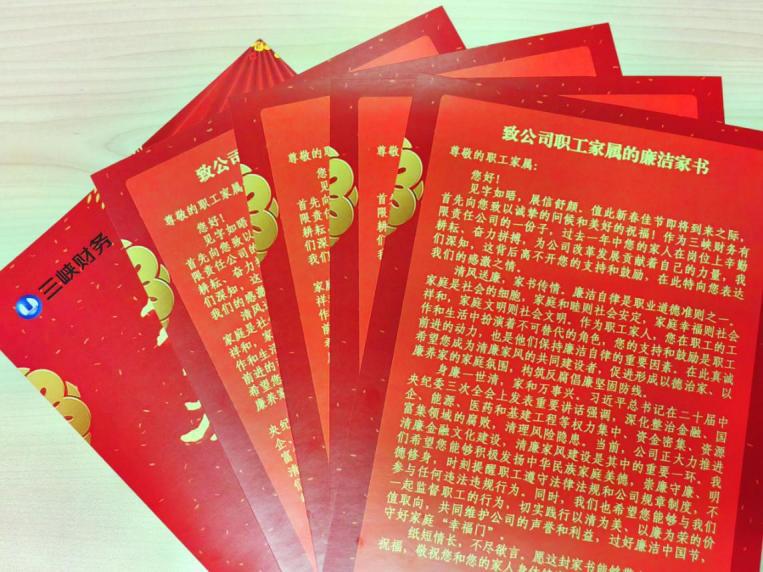 三峡财务
致公司职工家属的廉洁家书
尊敬的职工家属：
您好！
见字如晤，展信舒颜，值此新春佳节即将到来之际，
首先向您致以诚挚的问候和美好的祝福！作为三峡财务有
限责任公司的一份子，过去一年中您的家人在岗位上辛勤
耕耘、奋力拼搏，为公司改革发展贡献着自己的力量，我
们深知，这背后离不开您的支持和鼓励，在此特向您表达
我们的感激之情。
清风送廉，家书传情。廉洁自律是职业道德准则之一，
家庭是社会的细胞，家庭和睦则社会安定，家庭幸福则社会
祥和，家庭文明则社会文明。作为职工家人，您在职工的工
作和生活中扮演着不可替代的角色，您的支持和鼓励是职工
前进的动力，也是他们保持廉洁自律的重要因素。在此真诚
希望您成为清廉家风的共同建设者，促进形成以德治家、以
廉养家的家庭氛围，构筑反腐倡廉坚固防线。
身廉一世清，家和万事兴。习近平总书记在二十届中
央纪委三次全会上发表重要讲话强调，深化整治金融、国
企、能源、医药和基建工程等权力集中、资金密集、资源
富集领域的腐败，清理风险隐患。当前，公司正大力推进
清廉金融文化建设，清廉家风建设是其中的重要一环，我
们希望您能够积极发扬中华民族家庭美德，崇廉守廉、明
德修身，时刻提醒职工遵守法律法规和公司规章制度，不
参与任何违法违规行为。同时，我们也希望您能够与我们
一起监督职工的行为，切实践行以清为美、以廉为荣的价
值取向，共同维护公司的声誉和利益，过好廉洁中国节，
守好家庭“幸福门”。
纸短情长，不尽欲言。愿这封家书能够
祝福，敬祝您和您的家人身体